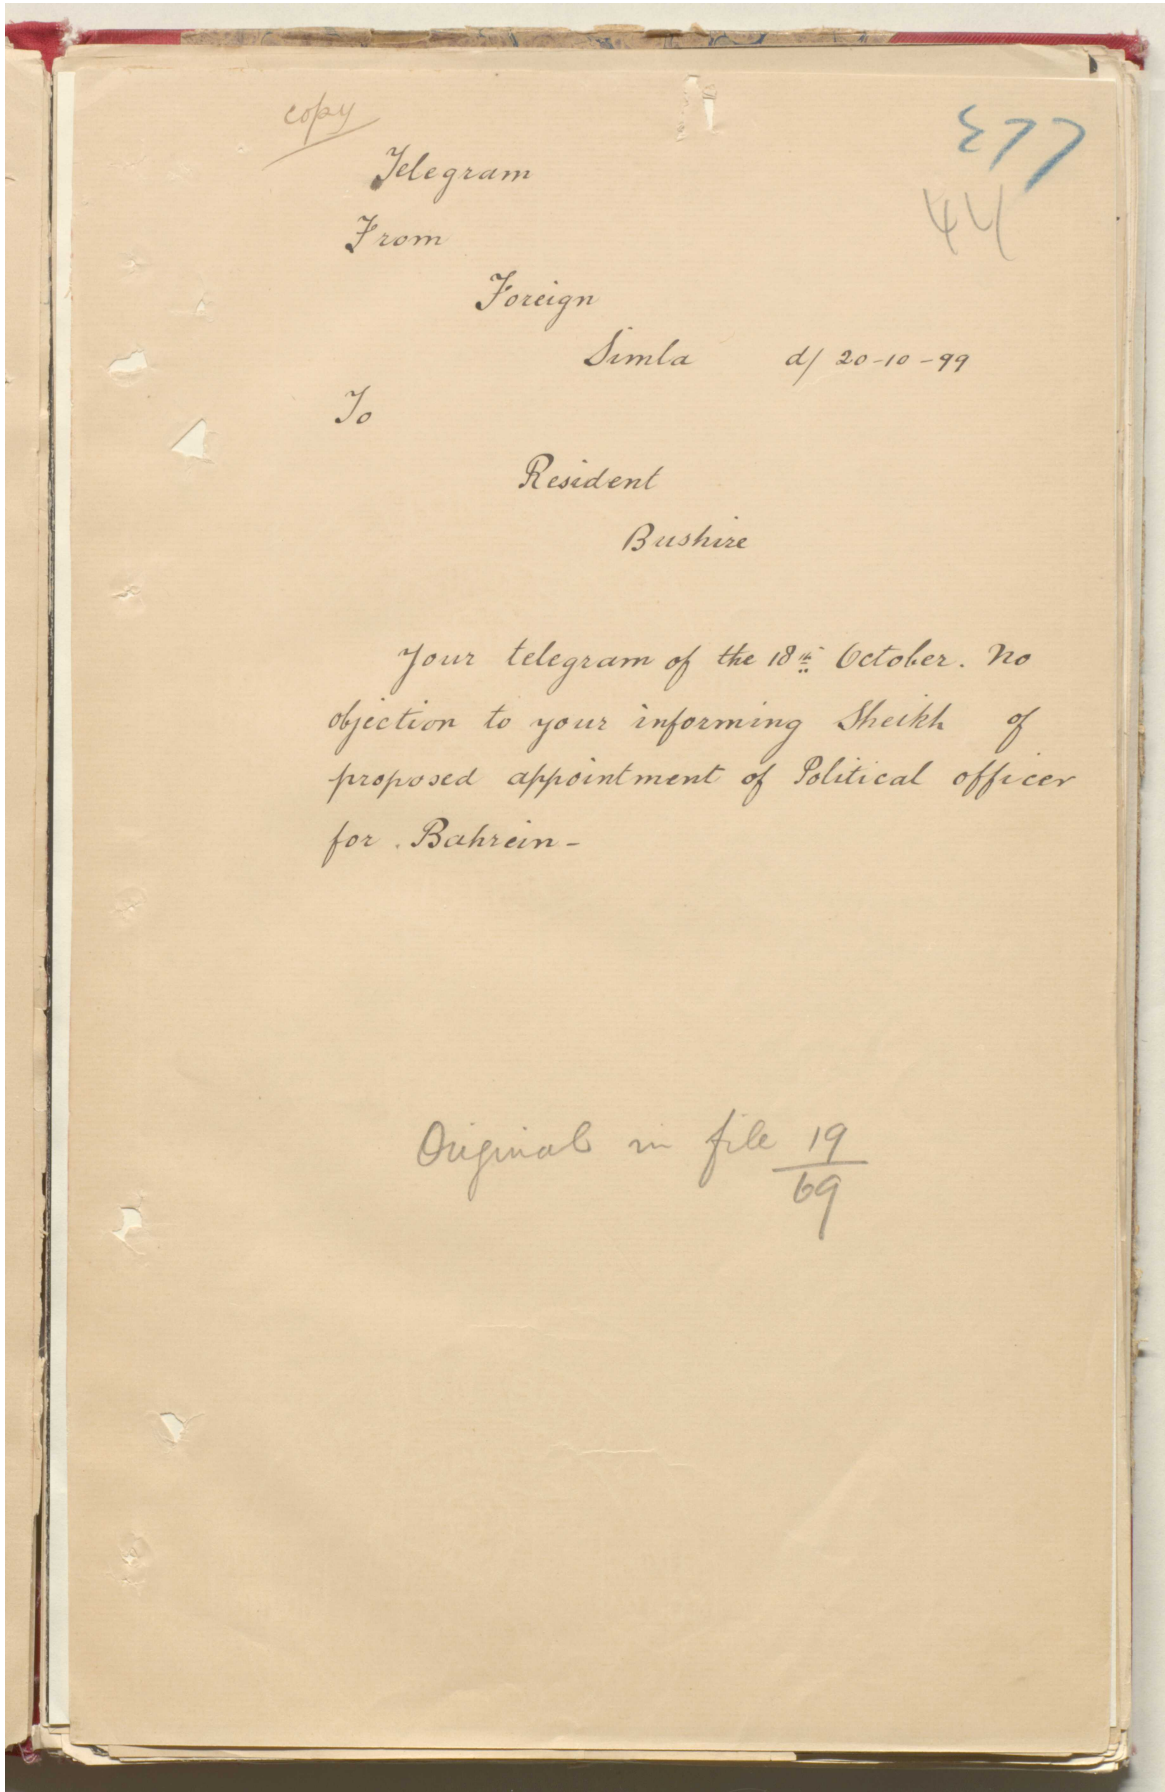 copy
277
44
Telegram
From
Foreign
Simla d/ 20-10-99
To
Resident
Bushire
Your telegram of the 18th October. No
objection to your informing Sheikh of
proposed appointment of Political officer
for. Bahrein-
Original in file 19/69